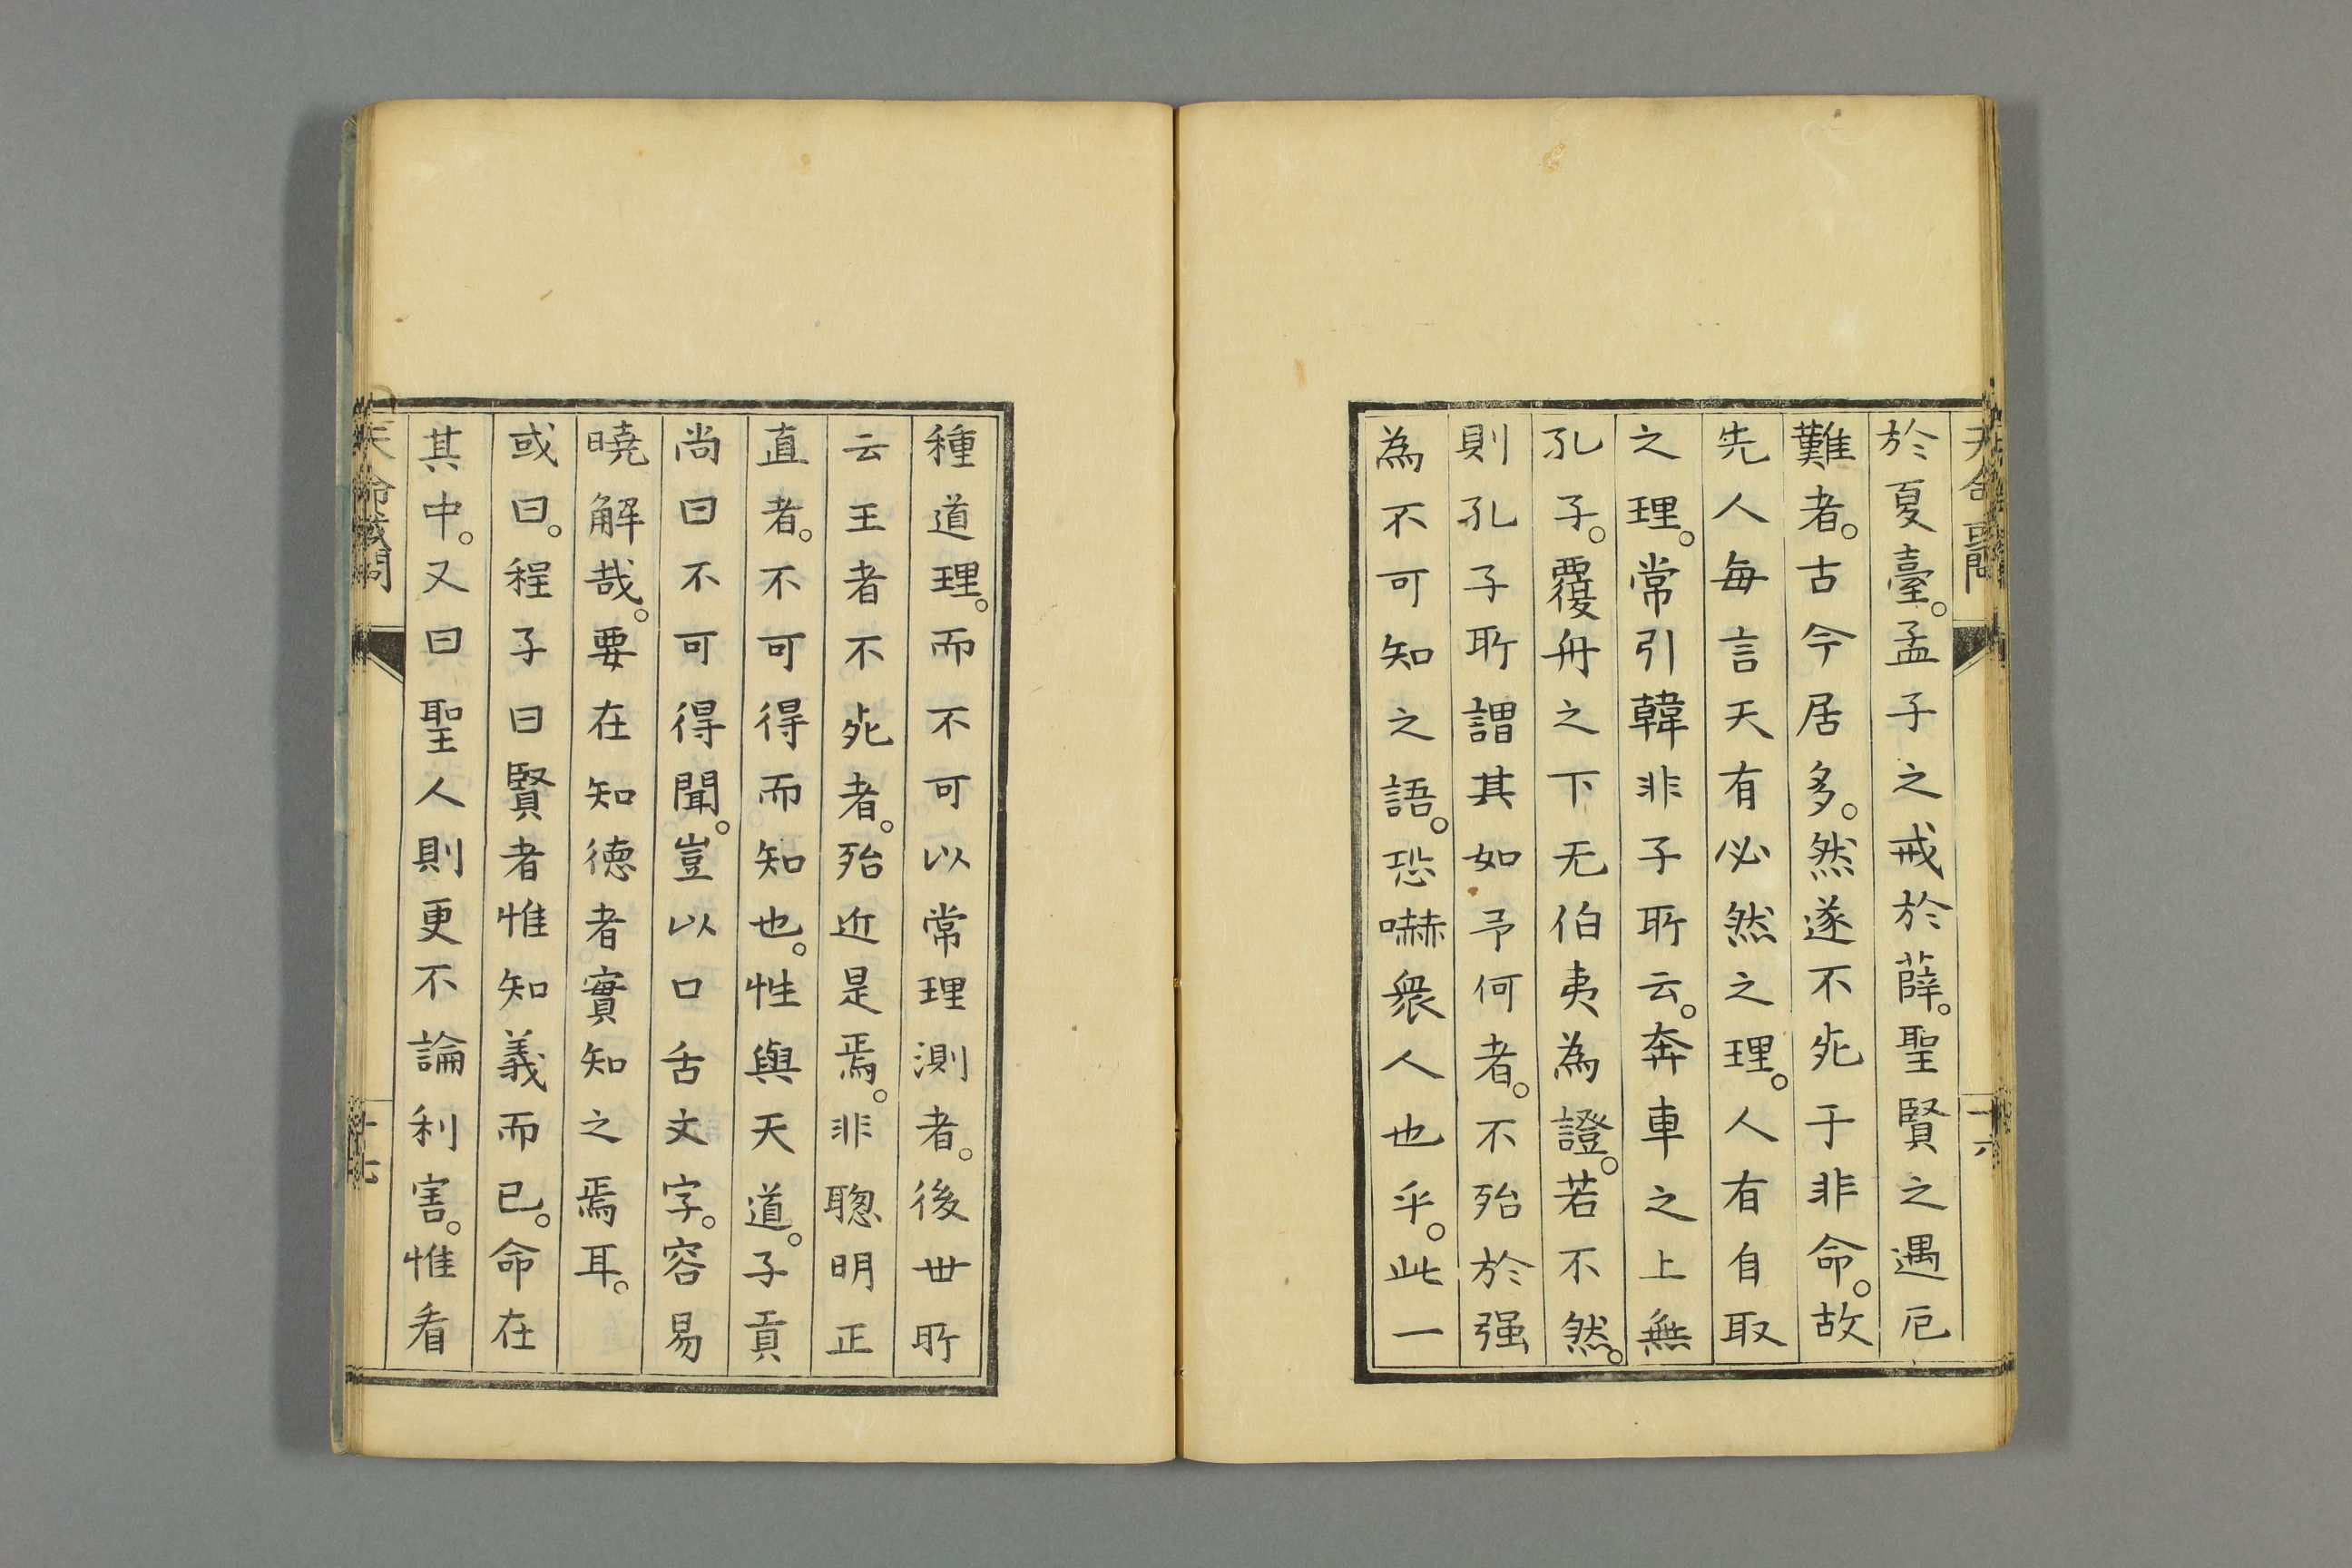 天命或問
十六
於夏臺。孟子之戒於薛。聖賢之遇厄
難者。古今居多。然遂不死于非命。故
先人每言天有必然之理。人有自取
之理。常引韓非子所云。奔車之上無
孔子。覆舟之下无伯夷為證。若不然。
則孔子所謂其如予何者。不殆於强
為不可知之語。恐嚇衆人也乎。此一
種道理。而不可以常理測者。後世所
云王者不死者。殆近是焉。非聰明正
直者。不可得而知也。性與天道。子貢
尚曰不可得聞。豈以口舌文字。容易
曉解哉。要在知德者。實知之焉耳。
或曰。程子曰賢者惟知義而已。命在
其中。又曰聖人則更不論利害。惟看
天命或問
十七